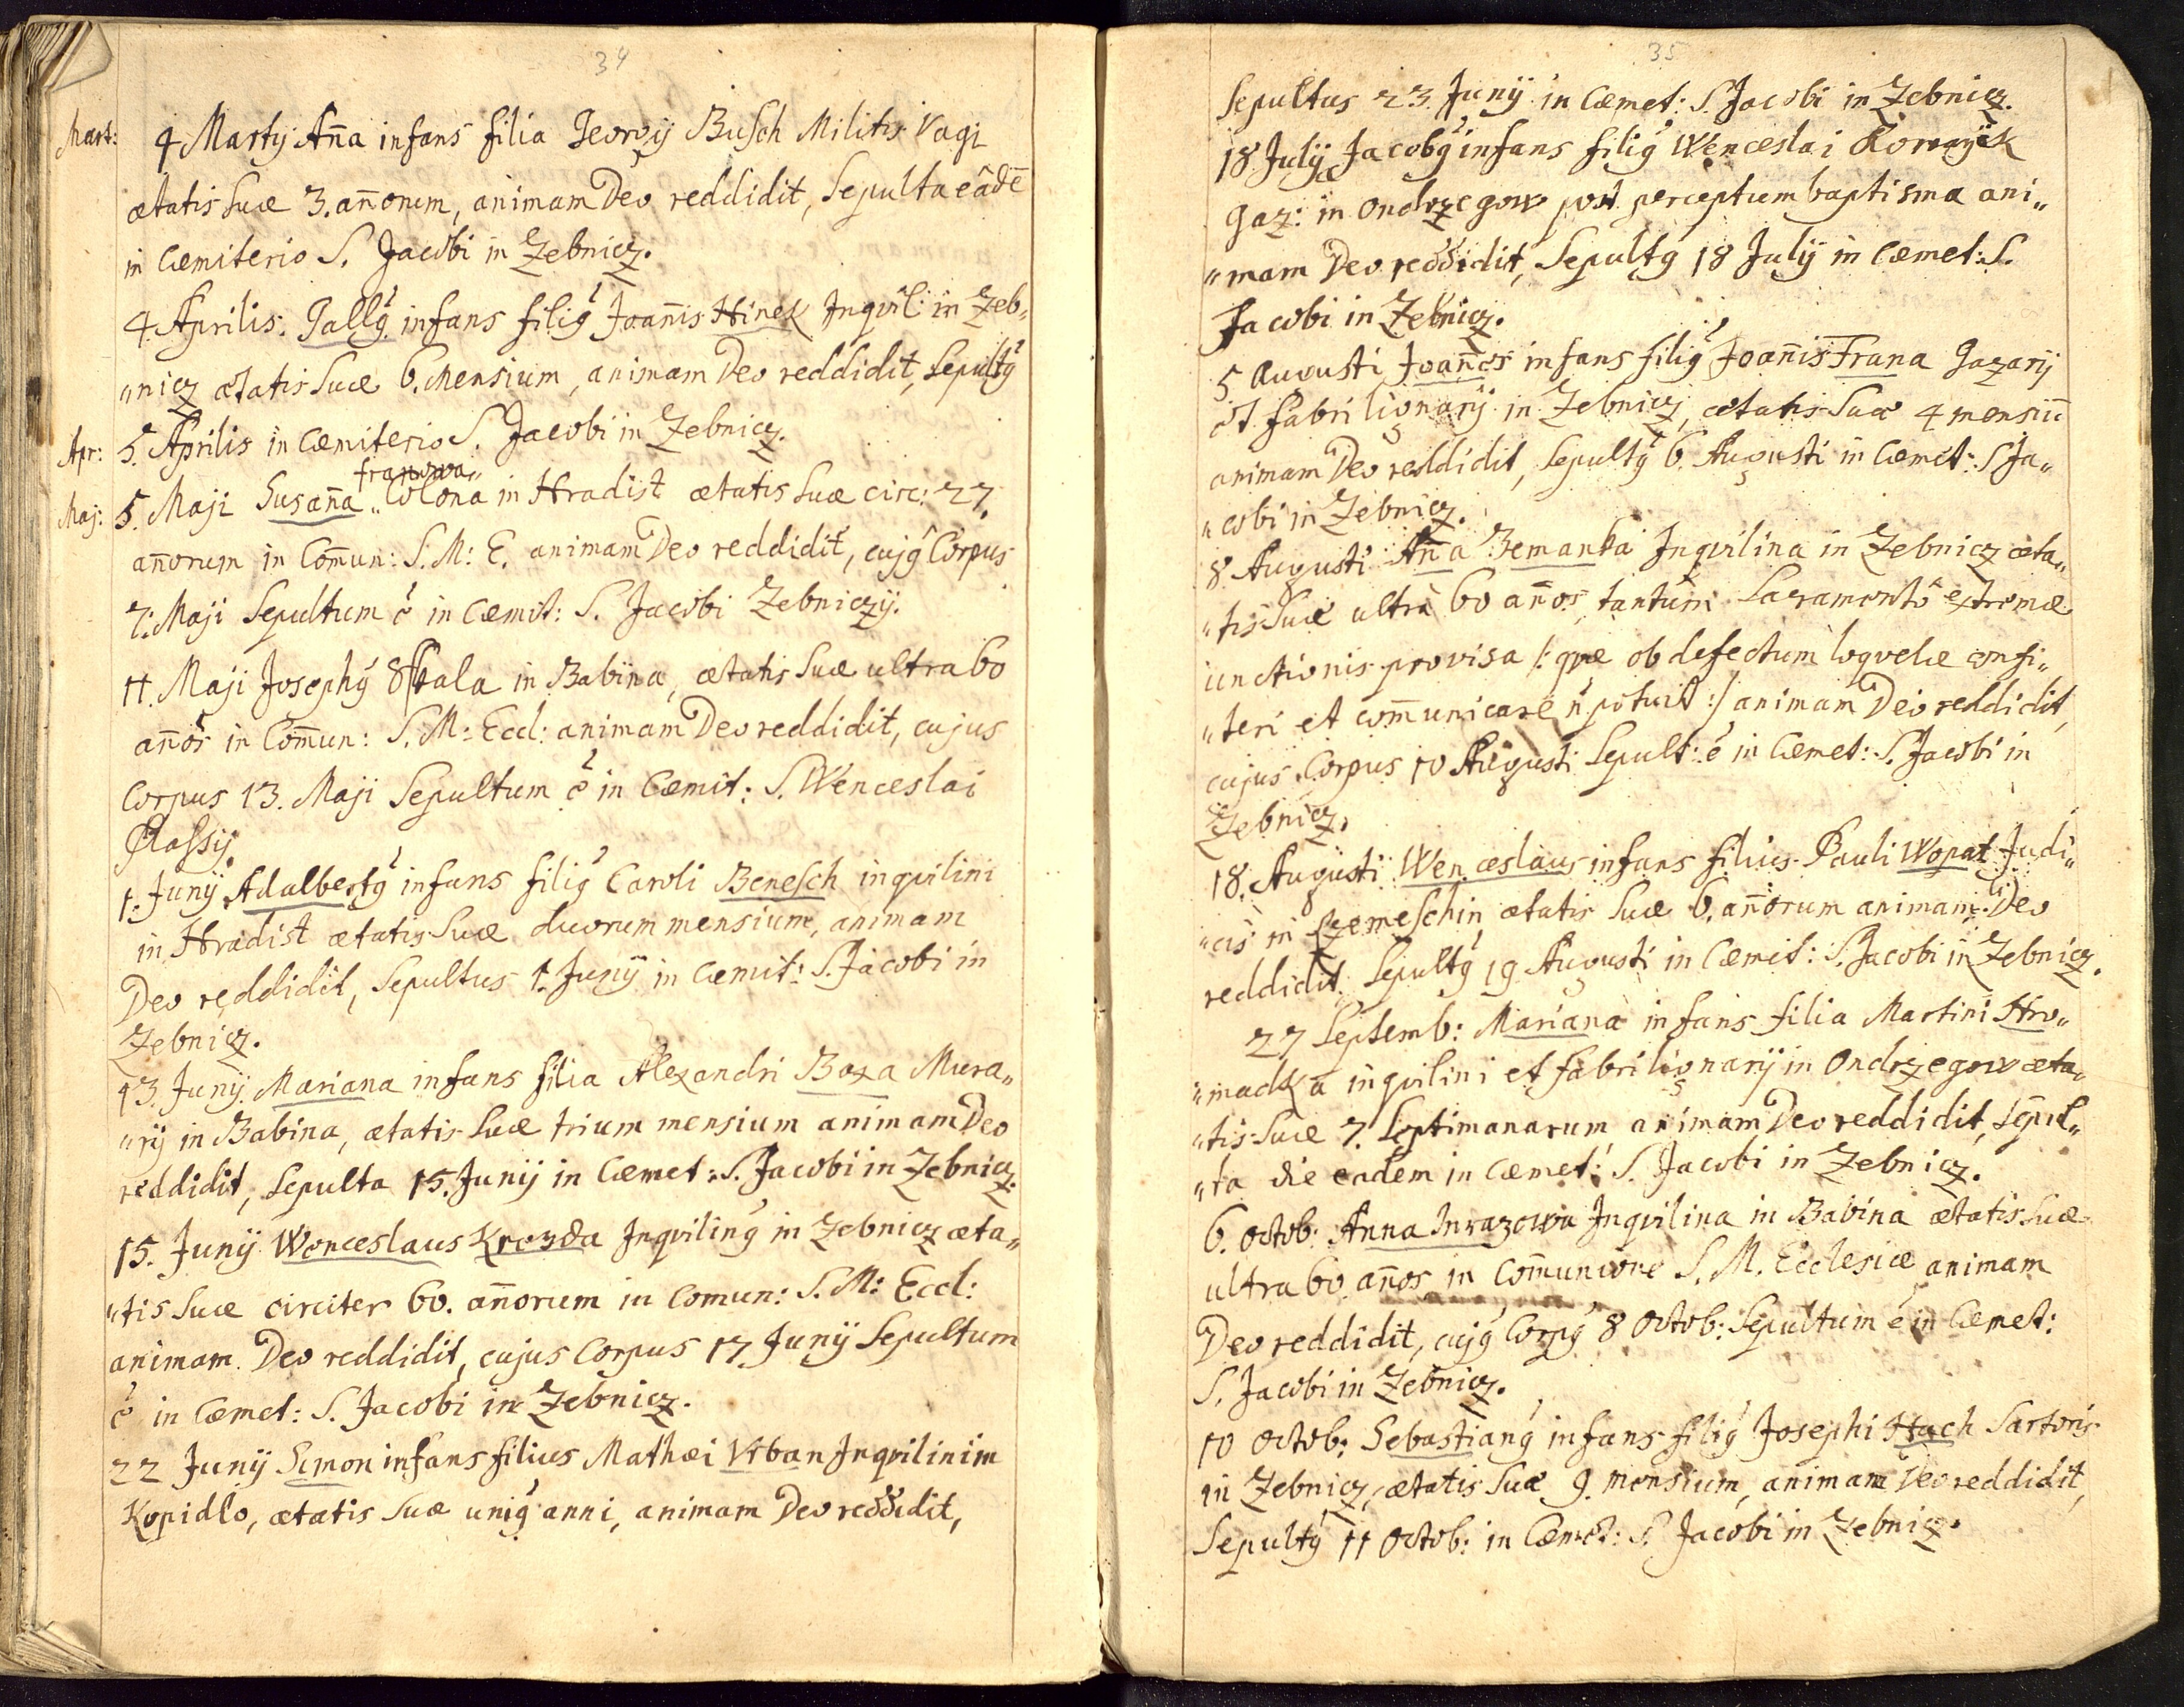 34
Mart: 4 Martij An̄a infans filia Georgij Busch Militis Vagi
ætatis suæ 3. an̄orum, animam Deo reddidit, Sepulta eâdē
in Cæmiterio S. Jacobi in Zebnicz.
4. Aprilis. Gallꝰ infans filiꝰ Joan̄is Hinek Inqvil: in Zeb„
„nicz ætatis suæ 6. mensium, animam Deo reddidit, Sepultꝰ
Apr: 5. Aprilis in Cæmiterio S. Jacobi in Zebnicz.
franowa
Maj: 5. Maji Susan̄a „ Colona in Hradist ætatis suæ circ: 27.
an̄orum in Com̄un: S. M: E. animam Deo reddidit, cujꝰ Corpus
7. Maji Sepultum ē in Cæmit: S. Jacobi Zebniczij.
11. Maji Josephꝰ Skala in Babina, ætatis suæ ultra 60
an̄os in Com̄un: S. M: Eccl: animam Deo reddidit, cujus
Corpus 13. Maji Sepultum ē in Cæmit: S. Wenceslai
Plassij.
1. Junij Adalbertꝰ infans filiꝰ Caroli Benesch inqvilini
in Hradist ætatis suæ duorum mensium, animam
Deo reddidit, Sepultus 1. Junij in Cæmit: S. Jacobi in
Zebnicz.
13. Junij. Mariana infans filia Alexandri Boxa Mura„
„rij in Babina, ætatis suæ trium mensium animam Deo
reddidit, Sepulta 15. Junij in Cæmet: S. Jacobi in Zebnicz.
15. Junij Wenceslaus Krozda Inqvilinꝰ in Zebnicz æta„
„tis suæ circiter 60. an̄orum in Comun: S. M: Eccl:
animam Deo reddidit, cujus Corpus 17 Junij Sepultum
ē in Cæmet: S. Jacobi in Zebnicz.
22 Junij Simon infans filius Mathæi Vrban Inqvilini in
Kopidlo, ætatis suæ uniꝰ anni, animam Deo reddidit,
35
Sepultus 23. Junij in Cæmet: S. Jacobi in Zebnicz.
18 Julij Jacobꝰ infans filiꝰ Wenceslai
Gaz: in Ondrzegow post perceptum baptisma ani„
„mam Deo reddidit, Sepultꝰ 18 Julij in Cæmet: S.
Jacobi in Zebnicz.
5 Augusti Joan̄es infans filiꝰ Joan̄is Frana Gazarij
et Fabri lignarij in Zebnicz, ætatis suæ 4 mensiū
animam Deo reddidit, Sepultꝰ 6. Augusti in Cæmet: S Ja„
„cobi in Zebnicz.
8 Augusti An̄a Zemanka Inqvilina in Zebnicz æta„
„tis suæ ultra 60 an̄os, tantum Sacramentô extremæ
unctionis provisa /: qvæ ob defectum loqvelæ confi„
„teri et com̄unicare n̄ potuit :/ animam Deo reddidit,
cujus Corpus 10 Augusti Sepult: ē in Cæmet: S. Jacobi in
Zebnicz.
18. Augusti Wenceslaus infans filius Pauli Wopat Judi„
„cis in Czemeschin, ætatis suæ 6. an̄orum animam Deo
reddidit, Sepultꝰ 19 Augusti in Cæmet: S. Jacobi in Zebnicz.
27 Septemb: Mariana infans filia Martini Hro„
„madka inqvilini et fabri lignarij in Ondrzegow æta„
„tis suæ 7. Septimanarum, animam Deo reddidit, sepul„
„ta die eadem in Cæmet: S. Jacobi in Zebnicz.
6. Octob: Anna Inrazowa Inqvilina in Babina ætatis suæ
ultra 60. an̄os in Com̄unione S. M. Ecclesiæ animam
Deo reddidit, cujꝰ Corpꝰ 8 Octob: Sepultum ē in Cæmet:
S. Jacobi in Zebnicz.
10 Octob: Sebastianꝰ infans filiꝰ Josephi Hach Sartoris
in Zebnicz, ætatis suæ 9. mensium, animam Deo reddidit,
Sepultꝰ 11 Octob: in Cæmet: S. Jacobi in Zebnicz.